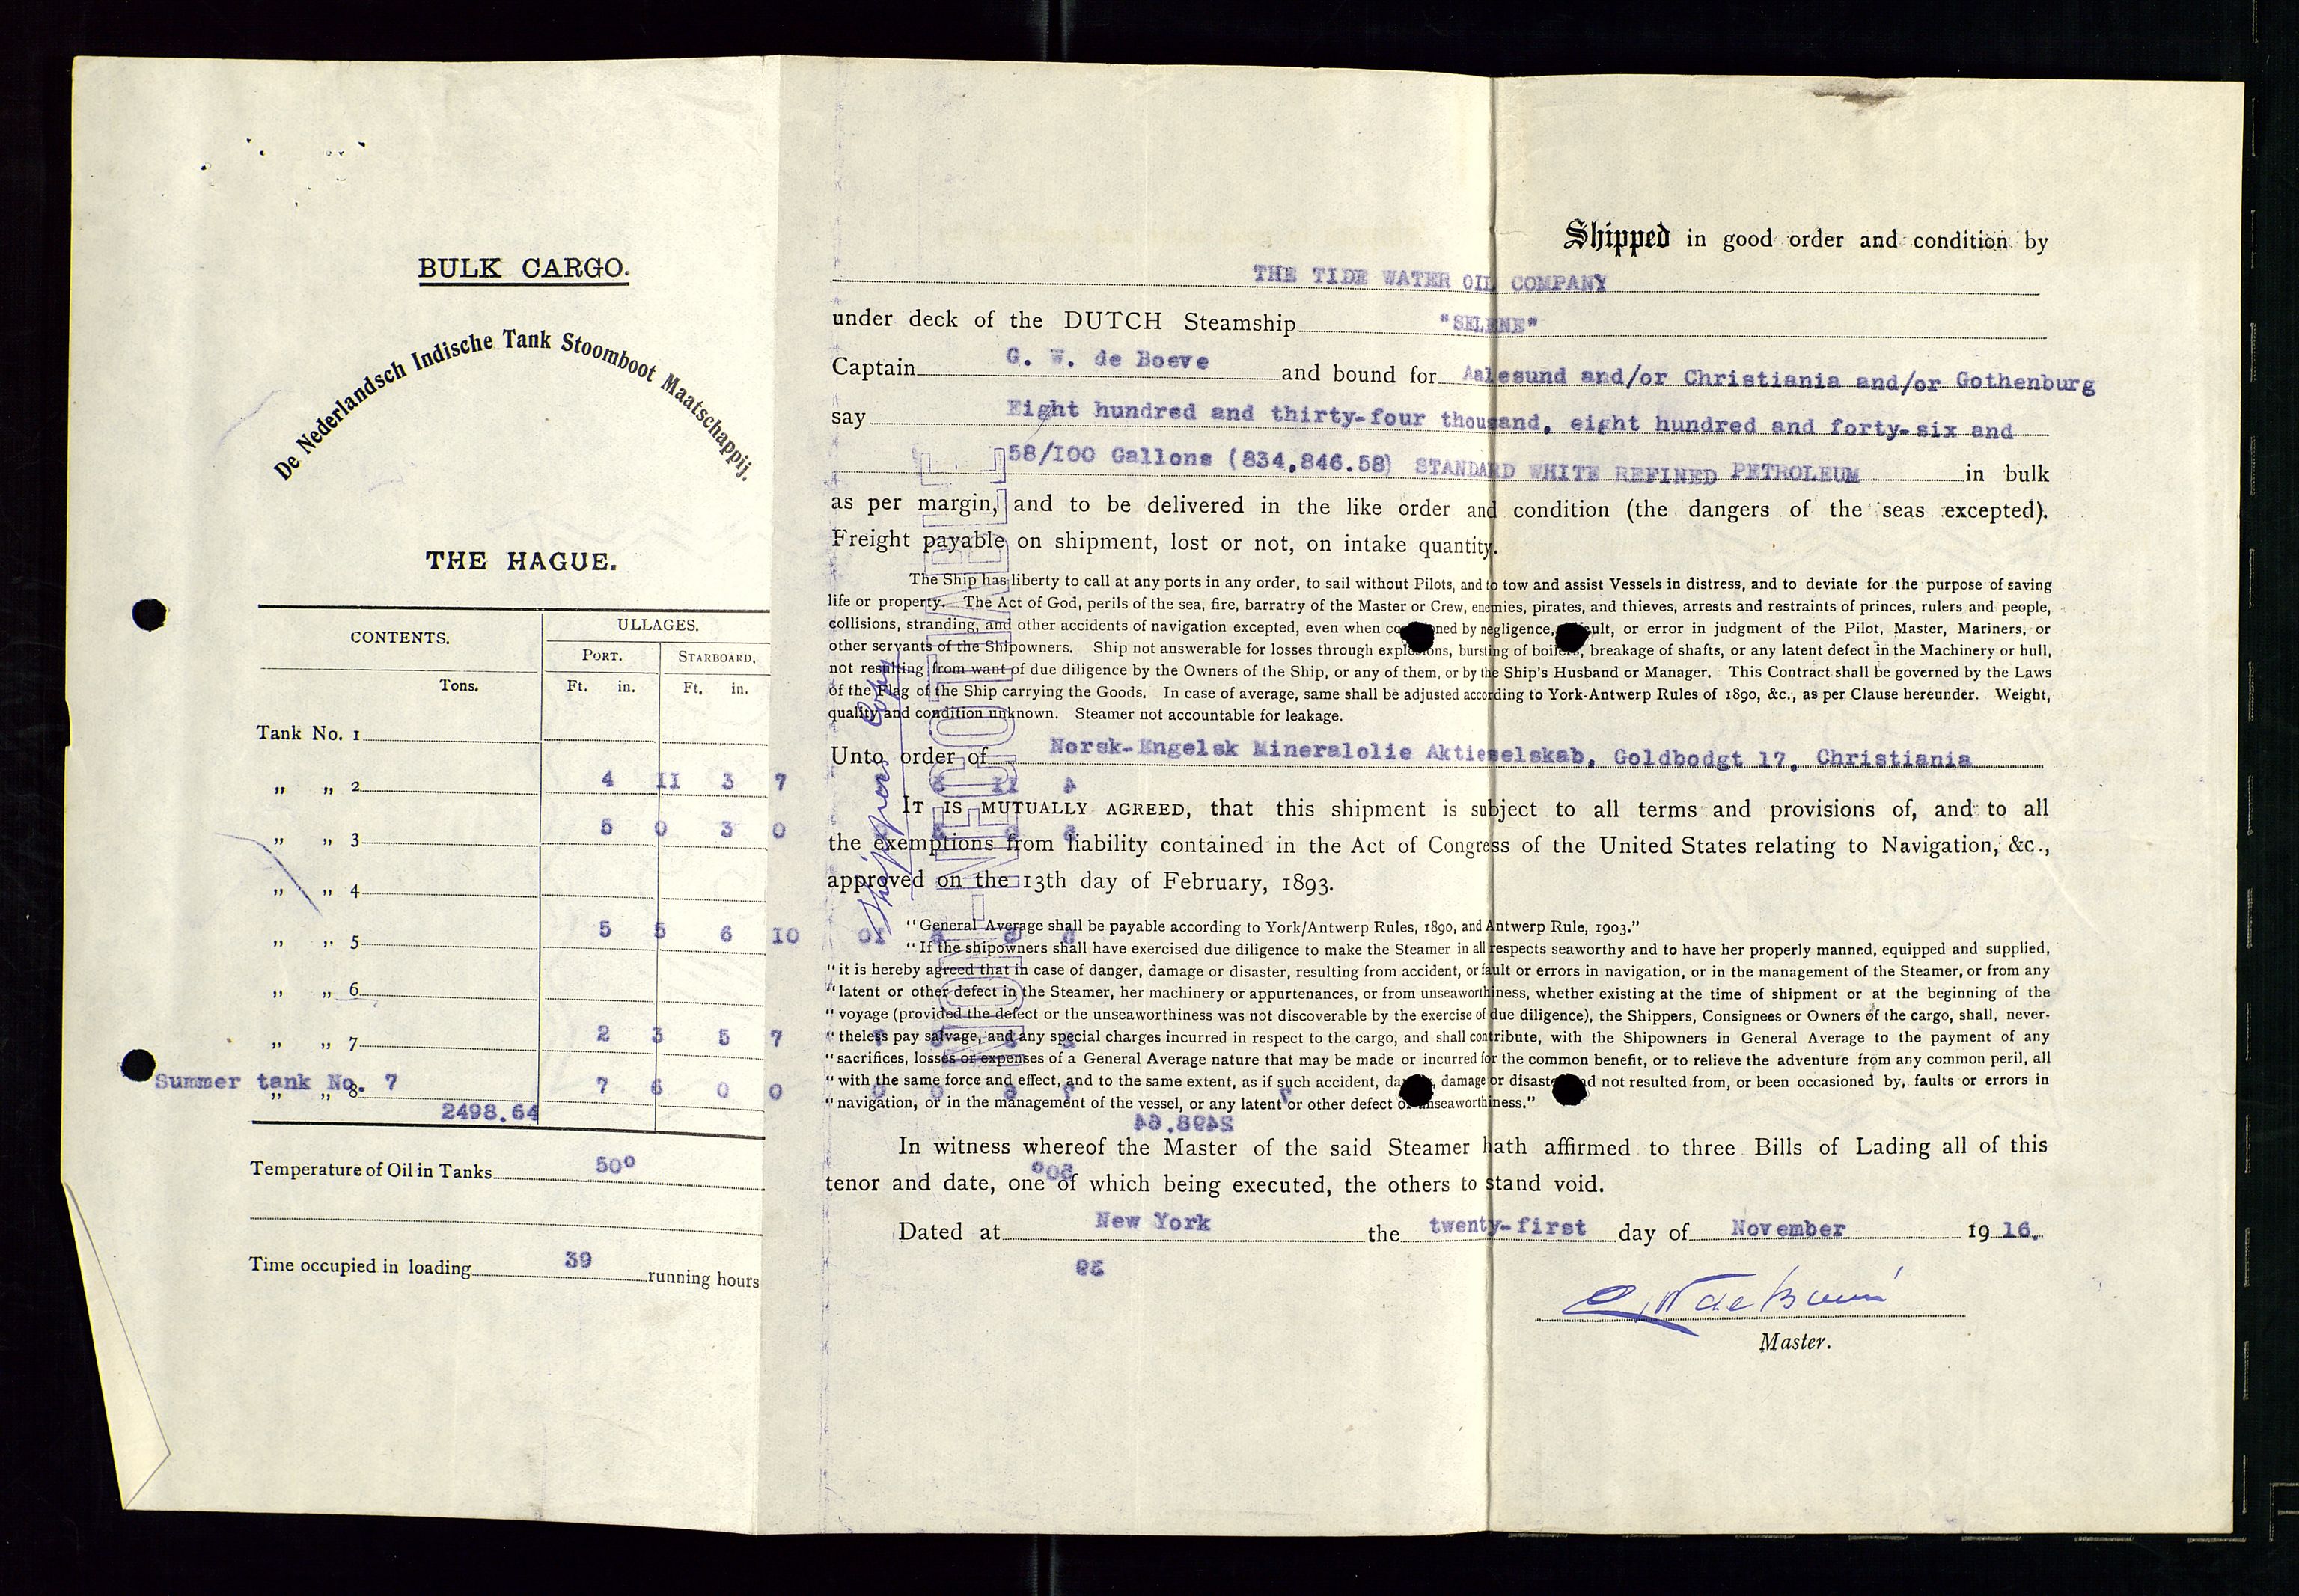 BULK CARGO.
De Nederlandsch Indische Tank Stoomboot Maatschappij.
THE HAGUE.
CONTENTS. ULLAGES.
PORT. STARBOARD.
Tons. Ft. in. Ft. in.
Tank No. 1
„ „ 2 4 II 3 7
„ „ 3 5 0 3 0
„ „ 4
„ „ 5 5 5 6 IO
„ „ 6
„ „ 7 2 3 5 7
Summer tank No. 7
„ „ 8 7 6 0 0
2498.64
Temperature of Oil in Tanks 50°
Time occupied in loading 39 running hours
Shipped in good order and condition by
THE TIDE WATER OIL COMPANY
under deck of the DUTCH Steamship "SELENE"
Captain G. W. de Boeve and bound for Aalesund and/or Christiania and/or Gothenburg
say Eight hundred and thirty-four thousand, eight hundred and forty-six and
58/I00 Gallons (834,846.58) STANDARD WHITE REFINED PETROLEUM in bulk
as per margin, and to be delivered in the like order and condition (the dangers of the seas excepted).
Freight payable on shipment, lost or not, on intake quantity.
The Ship has liberty to call at any ports in any order, to sail without Pilots, and to tow and assist Vessels in distress, and to deviate for the purpose of saving
life or property. The Act of God, perils of the sea, fire, barratry of the Master or Crew, enemies, pirates, and thieves, arrests and restraints of princes, rulers and people,
collisions, stranding, and other accidents of navigation excepted, even when occasioned by negligence, default, or error in judgment of the Pilot, Master, Mariners, or
other servants of the Shipowners. Ship not answerable for losses through explosions, bursting of boilers, breakage of shafts, or any latent defect in the Machinery or hull,
not resulting from want of due diligence by the Owners of the Ship, or any of them, or by the Ship's Husband or Manager. This Contract shall be governed by the Laws
of the Flag of the Ship carrying the Goods. In case of average, same shall be adjusted according to York-Antwerp Rules of 1890, &c., as per Clause hereunder. Weight,
quality and condition unknown. Steamer not accountable for leakage.
Unto order of Norsk-Engelsk Mineralolie Aktieselskab, Goldbodgt 17, Christiania
IT IS MUTUALLY AGREED, that this shipment is subject to all terms and provisions of, and to all
the exemptions from liability contained in the Act of Congress of the United States relating to Navigation, &c.,
approved on the 13th day of February, 1893.
"General Average shall be payable according to York/Antwerp Rules, 1890, and Antwerp Rule, 1903."
"If the shipowners shall have exercised due diligence to make the Steamer in all respects seaworthy and to have her properly manned, equipped and supplied,
"it is hereby agreed that in case of danger, damage or disaster, resulting from accident, or fault or errors in navigation, or in the management of the Steamer, or from any
"latent or other defect in the Steamer, her machinery or appurtenances, or from unseaworthiness, whether existing at the time of shipment or at the beginning of the
"voyage (provided the defect or the unseaworthiness was not discoverable by the exercise of due diligence), the Shippers, Consignees or Owners of the cargo, shall, never-
"theless pay salvage, and any special charges incurred in respect to the cargo, and shall contribute, with the Shipowners in General Average to the payment of any
"sacrifices, losses or expenses of a General Average nature that may be made or incurred for the common benefit, or to relieve the adventure from any common peril, all
"with the same force and effect, and to the same extent, as if such accident, danger, damage or disaster had not resulted from, or been occasioned by, faults or errors in
"navigation, or in the management of the vessel, or any latent or other defect or unseaworthiness."
In witness whereof the Master of the said Steamer hath affirmed to three Bills of Lading all of this
tenor and date, one of which being executed, the others to stand void.
Dated at New York the twenty-first day of November 19 16.
Master.
NON-NEGOTIABLE
Shippers Copy